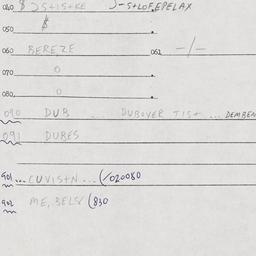 040 $
050 $
060 BEREZE 061 -/-
070 0
080 0
090 DUB ... DUBOVER TIS+ ... DEMBEN
091 DUBES
901 ... CUVIS+N ... (/020080
902 ME, BELS/ (830